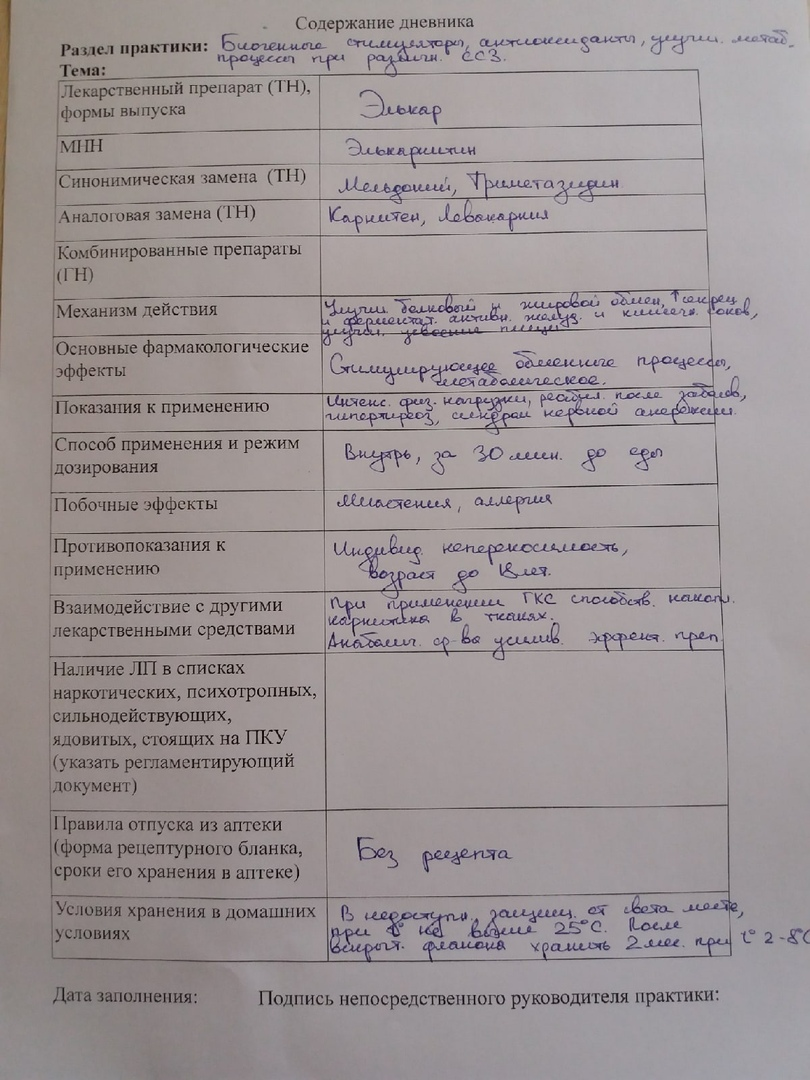 Содержание дневника
Раздел практики: Биогенные стимуляторы, антиоксиданты, улучш. метаб.
процессы при различн. ССЗ.
Тема:
Лекарственный препарат (ТН),
формы выпуска
Элькар
МНН
Элькарнитин
Синонимическая замена (ТН)
Мельдоний, Триметазидин
Аналоговая замена (ТН)
Карнитен, Левокарнил
Комбинированные препараты
(ТН)
Механизм действия
Улучш. белковый и жировой обмен, ↑секрец
и ферментат. активн. желуд. и кишечн. соков,
улучш. усвоение пищи
Основные фармакологические
эффекты
Стимулирующее обменные процессы,
метаболическое.
Показания к применению
Интенс. физ. нагрузки, реабил. после заболев,
гипертиреоз, синдром нервной анорексии.
Способ применения и режим
дозирования
Внутрь, за 30 мин. до еды
Побочные эффекты
Миастения, аллергия
Противопоказания к
применению
Индивид. непереносимость,
возраст до 18лет.
Взаимодействие с другими
лекарственными средствами
При применении ГКС способств. накопл.
карнитина в тканях.
Анаболич. ср-ва усилив. эффект. преп.
Наличие ЛП в списках
наркотических, психотропных,
сильнодействующих,
ядовитых, стоящих на ПКУ
(указать регламентирующий
документ)
Правила отпуска из аптеки
(форма рецептурного бланка,
сроки его хранения в аптеке)
Без рецепта
Условия хранения в домашних
условиях
В недоступн., защищ. от света месте,
при t° не выше 25°С. После
вскрыт. флакона хранить 2 мес. при t° 2-8°С
Дата заполнения: Подпись непосредственного руководителя практики: